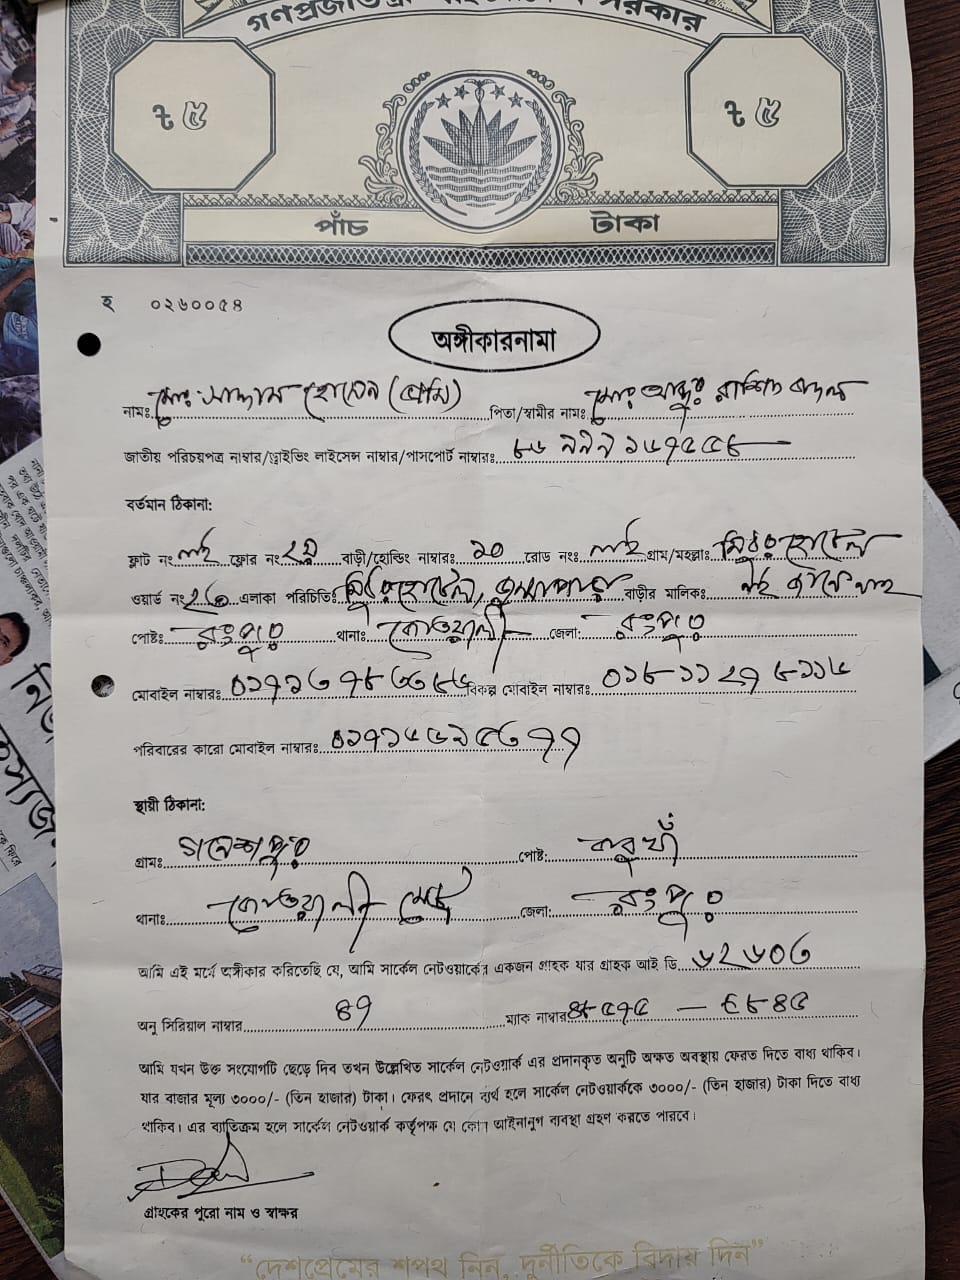 গণপ্রজাতন্ত্রী বাংলাদেশ সরকার
৳ ৫ ৳ ৫
পাঁচ টাকা
হ ০২৬০০৫৪
অঙ্গীকারনামা
নামঃ মোঃ সাদ্দাম হোসেন পিতা/স্বামীর নামঃ মোঃ আব্দুর রাশিদ
জাতীয় পরিচয়পত্র নাম্বার/ড্রাইভিং লাইসেন্স নাম্বার/পাসপোর্ট নাম্বারঃ
বর্তমান ঠিকানা:
ফ্লাট নং নাই ফ্লোর নং ২য় বাড়ী/হোল্ডিং নাম্বারঃ ১০ রোড নংঃ নাই গ্রাম/মহল্লাঃ
ওয়ার্ড নং এলাকা পরিচিতিঃ বাড়ীর মালিকঃ
পোষ্টঃ রংপুর থানাঃ কোতয়ালী জেলা: রংপুর
মোবাইল নাম্বারঃ বিকল্প মোবাইল নাম্বারঃ ০১৮১১২৭৮১১৬
পরিবারের কারো মোবাইল নাম্বারঃ
স্থায়ী ঠিকানা:
গ্রামঃ গনেশপুর পোষ্ট:
থানাঃ কোতয়ালী মেট্রো জেলা: রংপুর
আমি এই মর্মে অঙ্গীকার করিতেছি যে, আমি সার্কেল নেটওয়ার্কের একজন গ্রাহক যার গ্রাহক আই ডি ৬২৬০৩
অনু সিরিয়াল নাম্বার ৪৭ ম্যাক নাম্বারঃ
আমি যখন উক্ত সংযোগটি ছেড়ে দিব তখন উল্লেখিত সার্কেল নেটওয়ার্ক এর প্রদানকৃত অনুটি অক্ষত অবস্থায় ফেরত দিতে বাধ্য থাকিব।
যার বাজার মূল্য ৩০০০/- (তিন হাজার) টাকা। ফেরৎ প্রদানে ব্যর্থ হলে সার্কেল নেটওয়ার্ককে ৩০০০/- (তিন হাজার) টাকা দিতে বাধ্য
থাকিব। এর ব্যাতিক্রম হলে সার্কেল নেটওয়ার্ক কর্তৃপক্ষ যে কোন আইনানুগ ব্যবস্থা গ্রহণ করতে পারবে।
গ্রাহকের পুরো নাম ও স্বাক্ষর
“দেশপ্রেমের শপথ নিন, দুর্নীতিকে বিদায় দিন”